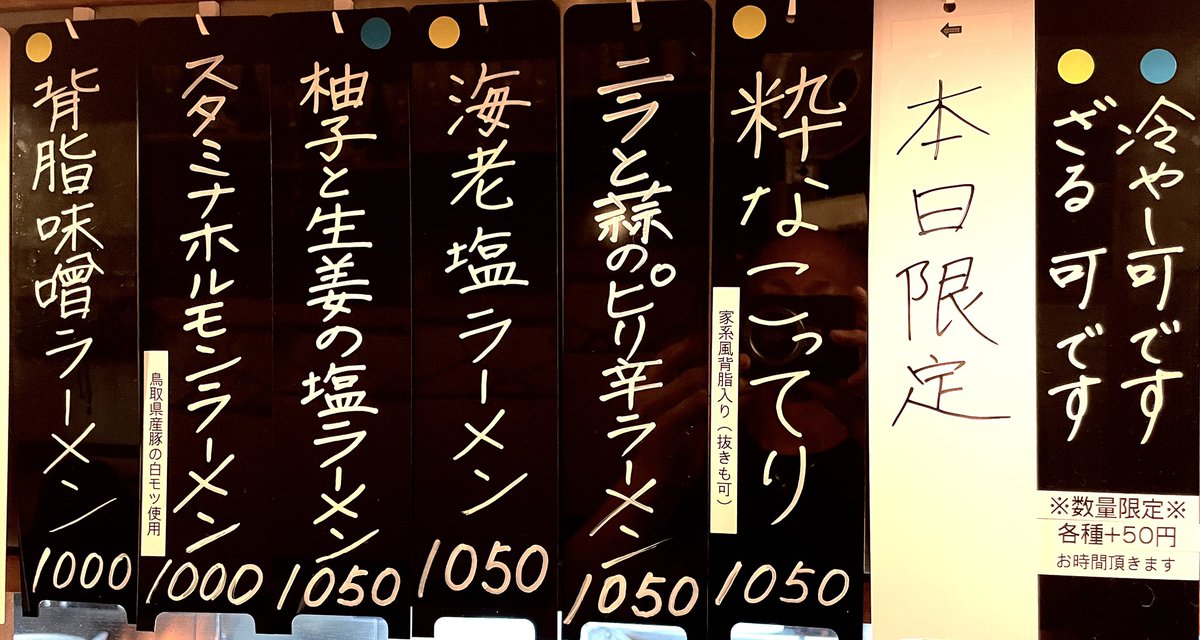 冷やし可です
ざる 可です
※数量限定※
各種+50円
お時間頂きます
←
本日限定
粋なこってり
家系風背脂入り（抜きも可）
1050
ニラと蒜のピリ辛ラーメン
1050
海老塩ラーメン
1050
柚子と生姜の塩ラーメン
1050
スタミナホルモンラーメン
鳥取県産豚の白モツ使用
1000
背脂味噌ラーメン
1000